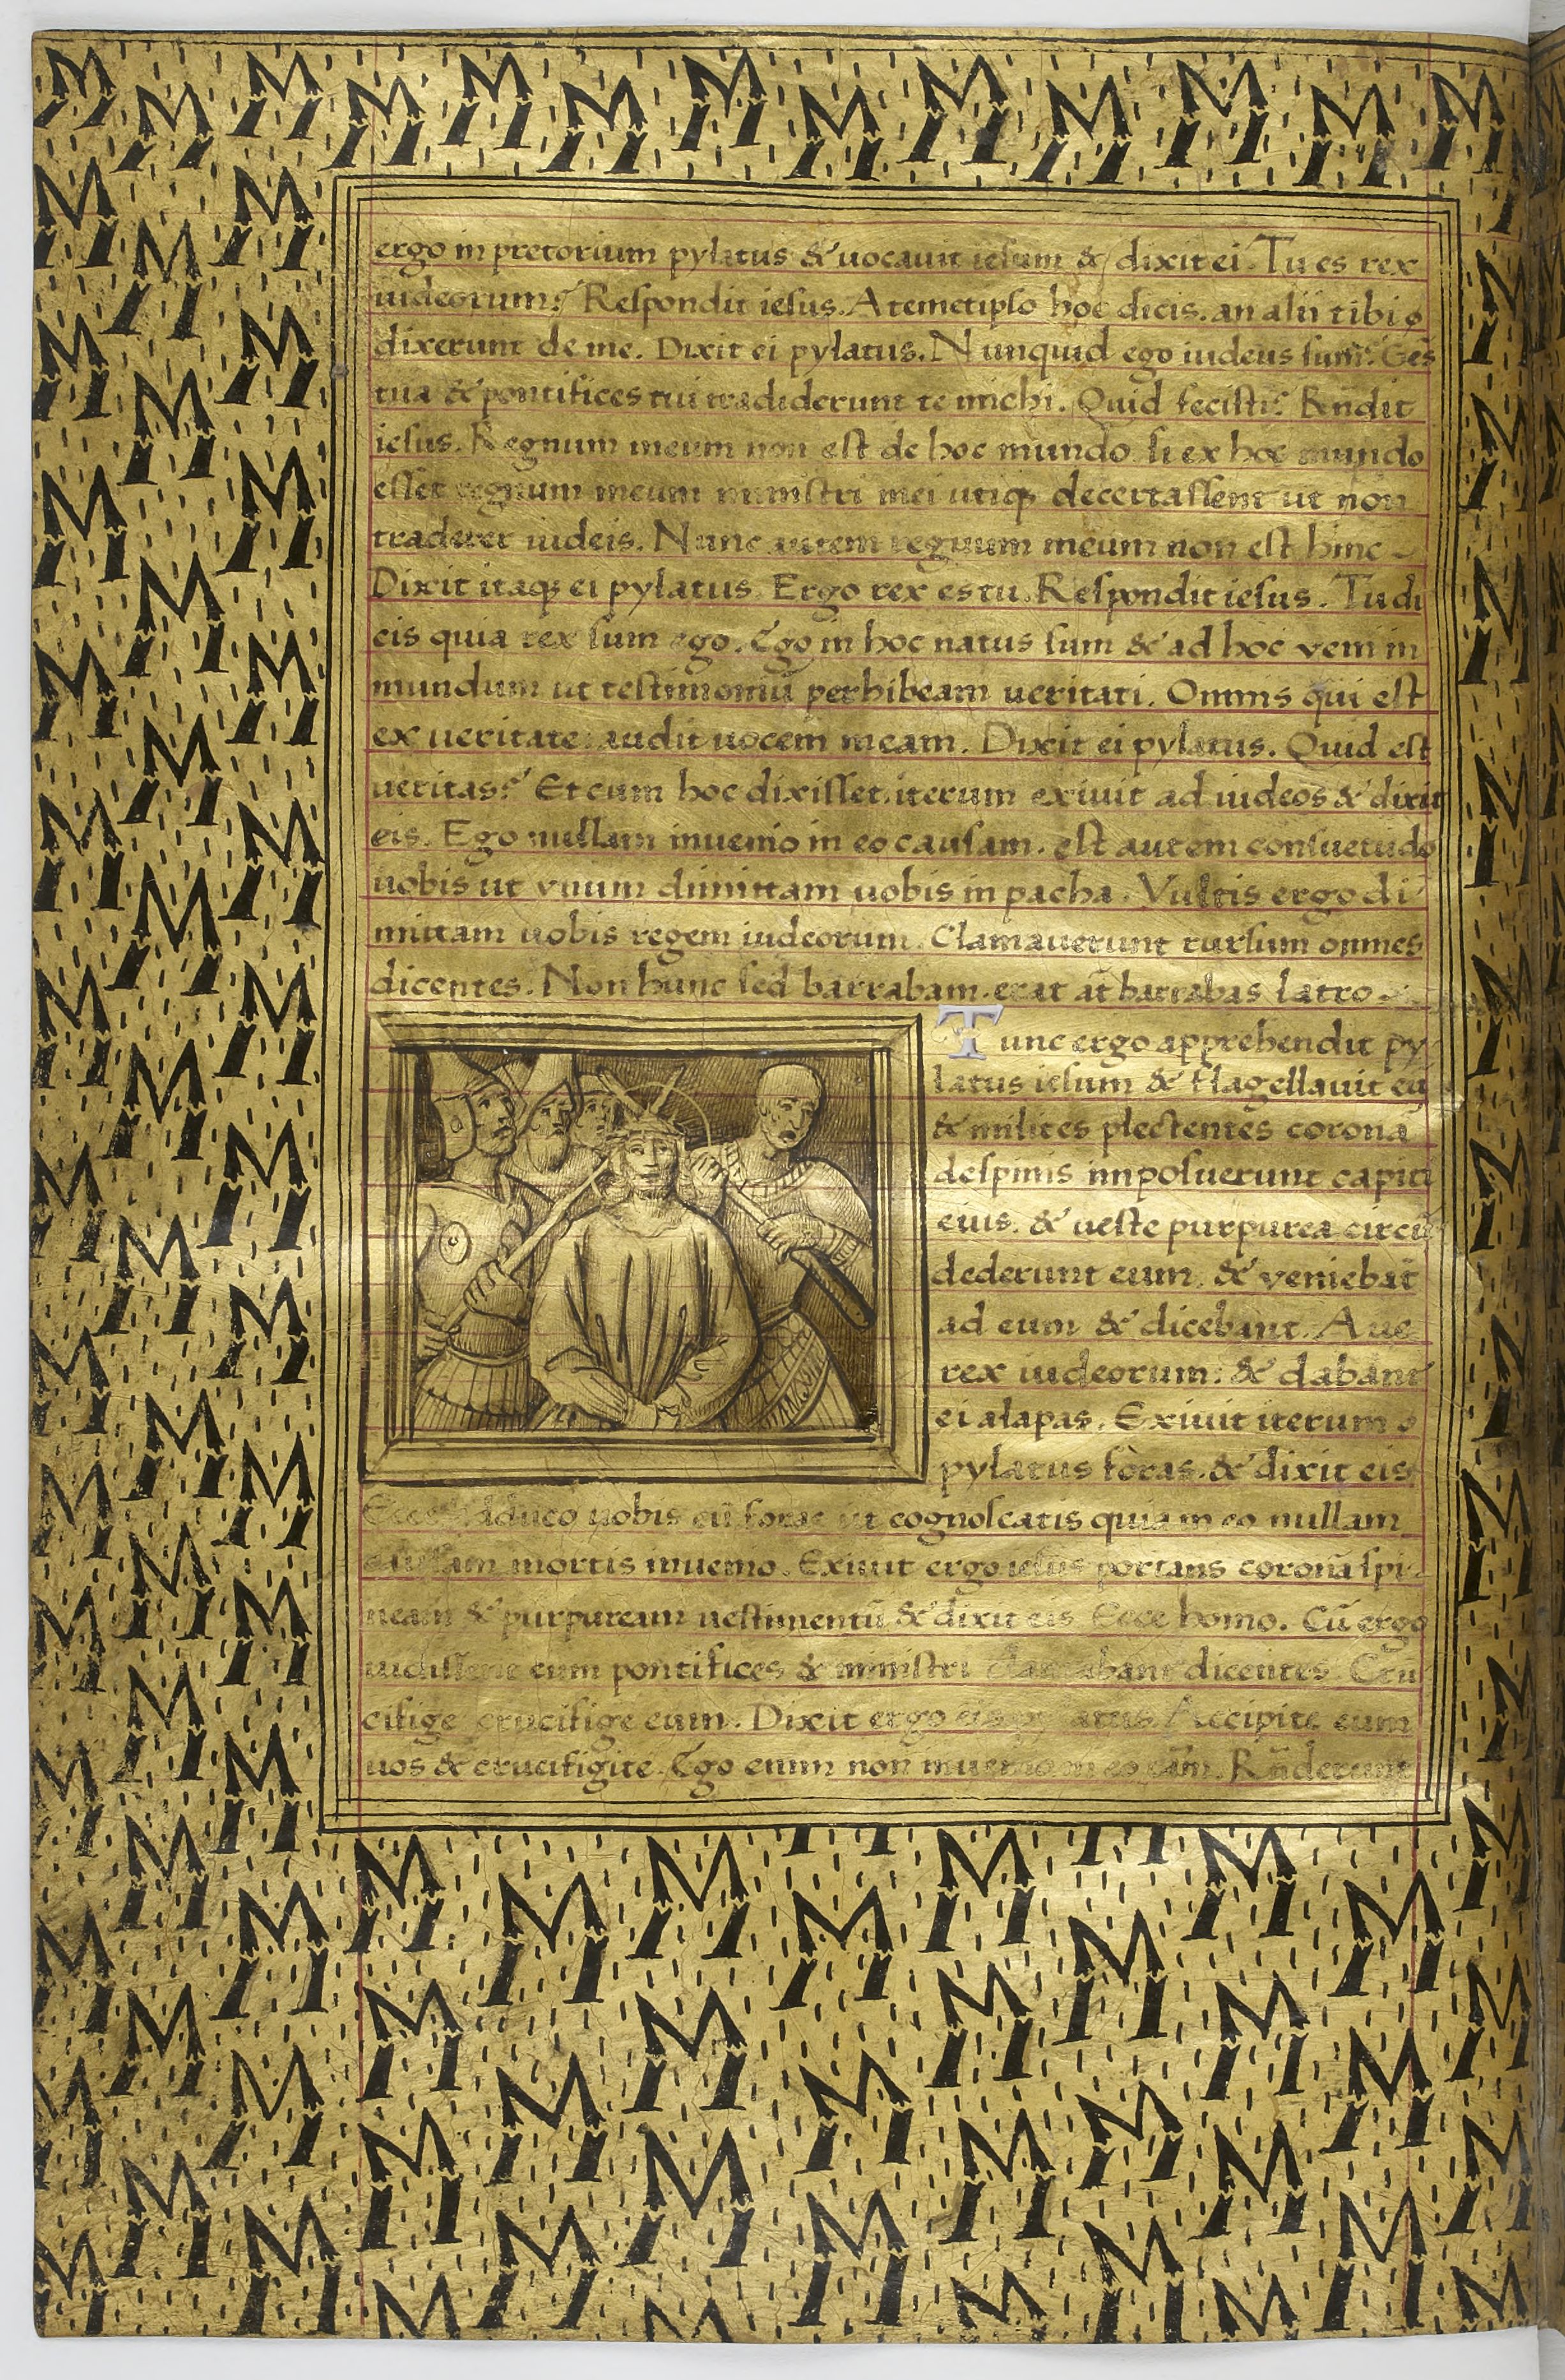 ergo in pretorium pylatus & uocauit iesum & dixit ei. Tu es rex
iudeorum? Respondit iesus. A temetipso hoc dicis. an alii tibi
dixerunt de me. Dixit ei pylatus. Nunquid ego iudeus sum? Gēs
tua & pontifices tui tradiderunt te michi. Quid fecisti? Rn̄dit
iesus. Regnum meum non est de hoc mundo si ex hoc mundo
esset regnum meum ministri mei utiqꝫ decertassent ut non
traderer iudeis. Nunc autem regnum meum non est hinc
Dixit itaqꝫ ei pylatus. Ergo rex es tu. Respondit iesus. Tu di
cis quia rex sum ego. Ego in hoc natus sum & ad hoc veni in
mundum ut testimoniū perhibeam ueritati. Omnis qui est
ex ueritate audit uocem meam. Dixit ei pylatus. Quid est
ueritas? Et cum hoc dixisset. iterum exiuit ad iudeos & dixit
eis. Ego nullam inuenio in eo causam. est autem consuetudo
uobis ut vnum dimittam uobis in pacha. Vultis ergo di
mittam uobis regem iudeorum. Clamauerunt rursum omnes
dicentes. Non hunc sed barrabam. erat at̄ barrabas latro
Tunc ergo apprehendit py
latus iesum & flagellauit eū
& milites plectentes coronā
de spinis imposuerunt capiti
eius. & ueste purpurea circū
dederunt eum. & veniebāt
ad eum & dicebant. Aue
rex iudeorum: & dabant
ei alapas. Exiuit iterum
pylatus foras. & dixit eis
Ecce adduco uobis eū foras ut cognoscatis quia in eo nullam
causam mortis inuenio. Exiuit ergo iesus portans coronā spi
neam & purpuream uestimentū & dixit eis Ecce homo. Cū ergo
uidissent eum pontifices & ministri clamabant dicentes Cru
cifige crucifige eum. Dixit ergo eis pylatus. Accipite eum
uos & crucifigite. Ego enim non inuenio in eo cām. Rn̄derunt